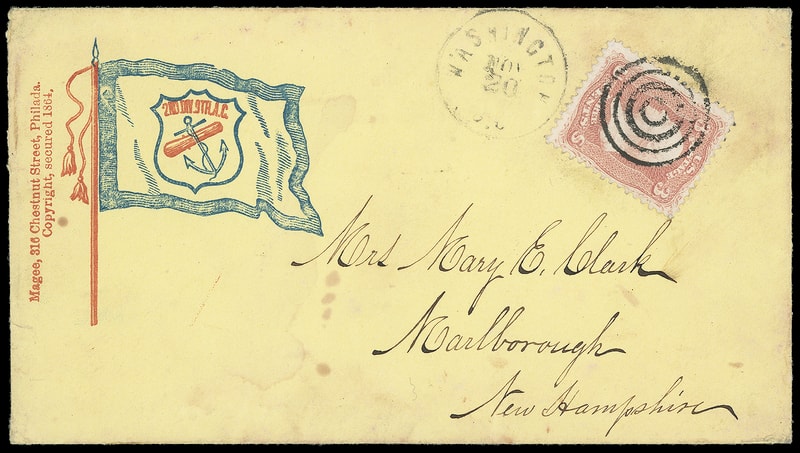 Magee, 316 Chestnut Street, Philada.
Copyright, secured 1864,
2ND DIV. 9TH A.C.
WASHINGTON
NOV
20
D.C
Mrs Mary E. Clark
Marlborough
New Hampshire